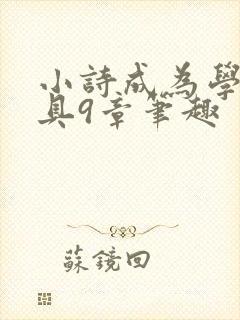 小詩成為學
具9章筆趣
蘇鏡回